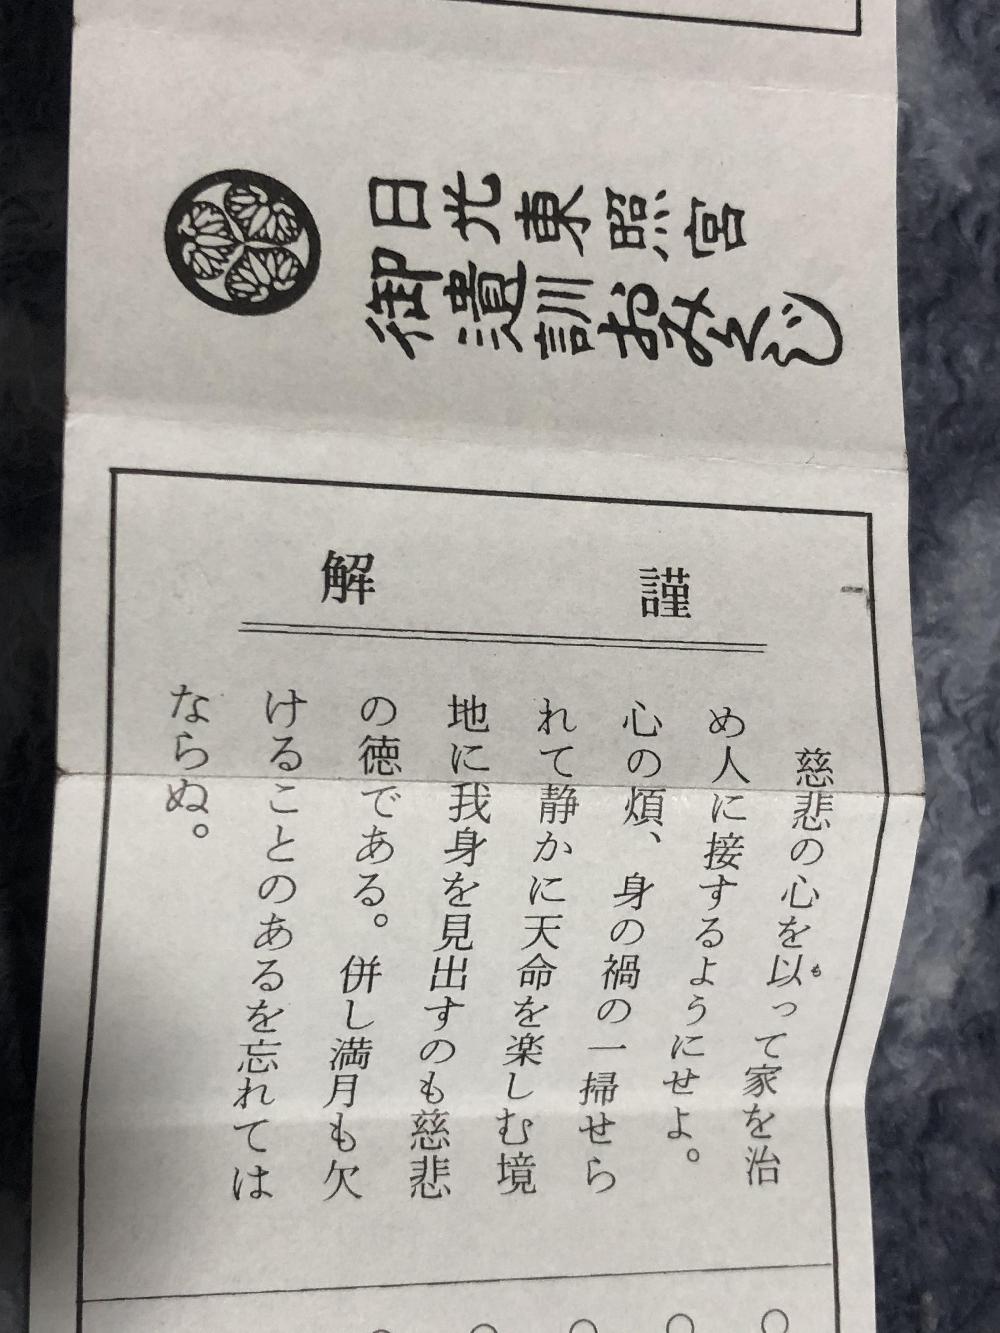 日光東照宮
御遺訓おみくじ
謹解
慈悲の心を以って家を治
も
め人に接するようにせよ。
心の煩、身の禍の一掃せら
れて静かに天命を楽しむ境
地に我身を見出すのも慈悲
の徳である。併し満月も欠
けることのあるを忘れては
ならぬ。